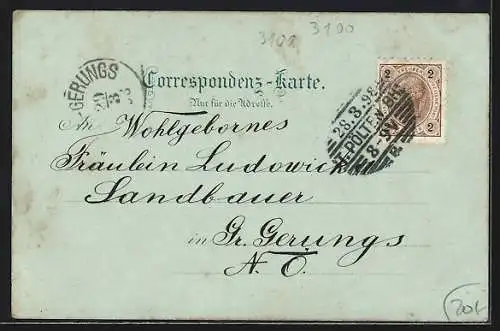 3108 3100
GERUNGS
Correspondenz-Karte.
Nur für die Adresse.
2 2
28.3.98
ST. PÖLTEN
An Wohlgebornes
Fräulein Ludowick
Landbauer
in Gr. Gerungs
N. Ö.